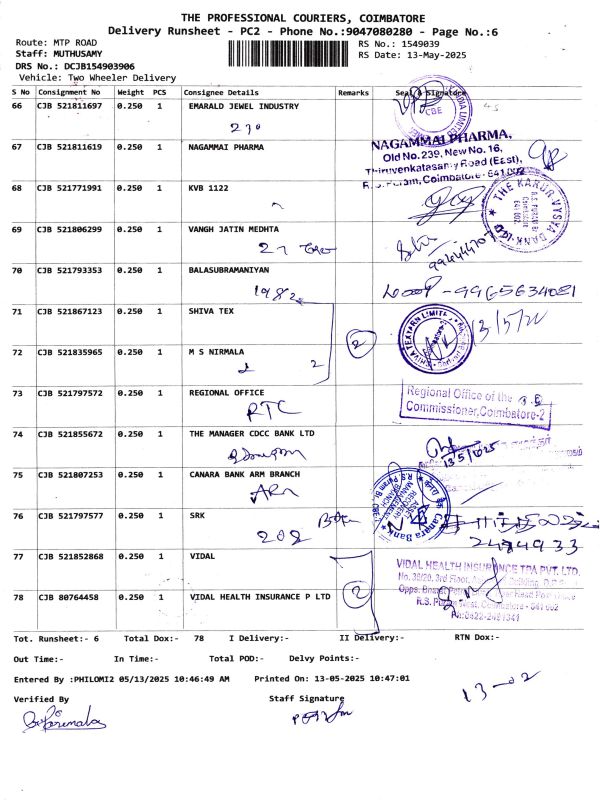 THE PROFESSIONAL COURIERS, COIMBATORE
Delivery Runsheet - PC2 - Phone No.:9047080280 - Page No.:6
Route: MTP ROAD
RS No.: 1549039
Staff: MUTHUSAMY
RS Date: 13-May-2025
DRS No.: DCJB154903906
Vehicle: Two Wheeler Delivery
S No Consignment No Weight PCS Consignee Details Remarks Seal & Signature
66 CJB 521811697 0.250 1 EMARALD JEWEL INDUSTRY
CBE
210
67 CJB 521811619 0.250 1 NAGAMMAI PHARMA
NAGAMMAI PHARMA,
Old No. 239, New No. 16,
Thiruvenkatasamy Road (East),
R.S. Puram, Coimbatore - 641 002
68 CJB 521771991 0.250 1 KVB 1122
THE KARUR VYSYA BANK LTD
69 CJB 521806299 0.250 1 VANGH JATIN MEDHTA
27
70 CJB 521793353 0.250 1 BALASUBRAMANIYAN
1982
- 9965634021
71 CJB 521867123 0.250 1 SHIVA TEX
SHIVA TEXYARN LIMITED
2
72 CJB 521835965 0.250 1 M S NIRMALA
2
73 CJB 521797572 0.250 1 REGIONAL OFFICE
RTC
Regional Office of the
Commissioner, Coimbatore-2
74 CJB 521855672 0.250 1 THE MANAGER CDCC BANK LTD
13/5/2025
75 CJB 521807253 0.250 1 CANARA BANK ARM BRANCH
ARM
Canara Bank
76 CJB 521797577 0.250 1 SRK
202
77 CJB 521852868 0.250 1 VIDAL
VIDAL HEALTH INSURANCE TPA PVT. LTD.
No. 39/20, 3rd Floor,
Building,
2
78 CJB 80764458 0.250 1 VIDAL HEALTH INSURANCE P LTD
R.S. Puram West, Coimbatore - 641 002
Tot. Runsheet:- 6 Total Dox:- 78 I Delivery:- II Delivery:- RTN Dox:-
Out Time:- In Time:- Total POD:- Delvy Points:-
Entered By :PHILOMI2 05/13/2025 10:46:49 AM Printed On: 13-05-2025 10:47:01
13-02
Verified By Staff Signature